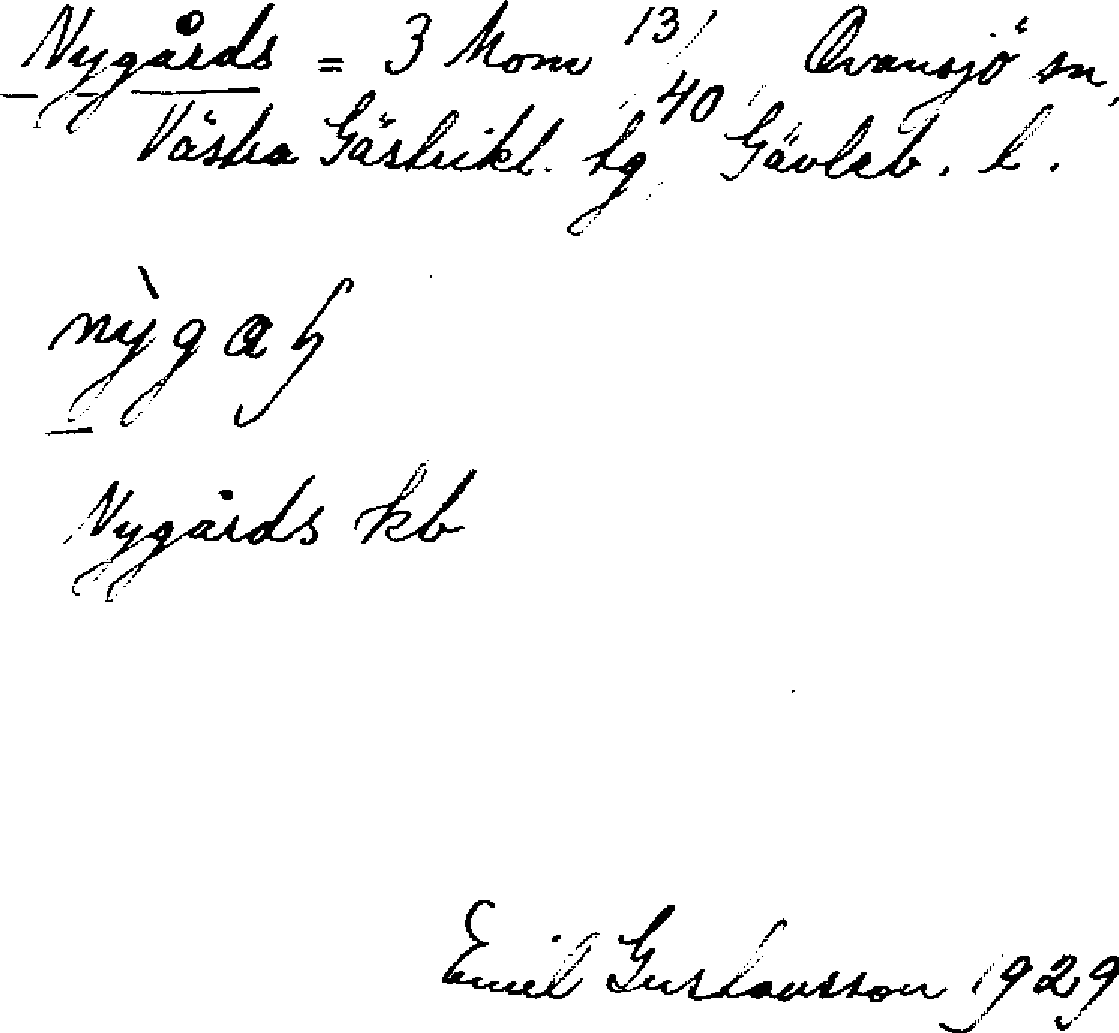 Nygårds = 3 Mom 13/40 Ovansjö sn,
Västra Gästrikl. hg Gävleb. l.
nỳgaꞕ
Nygårds kb
Emil Gustavsson 1929